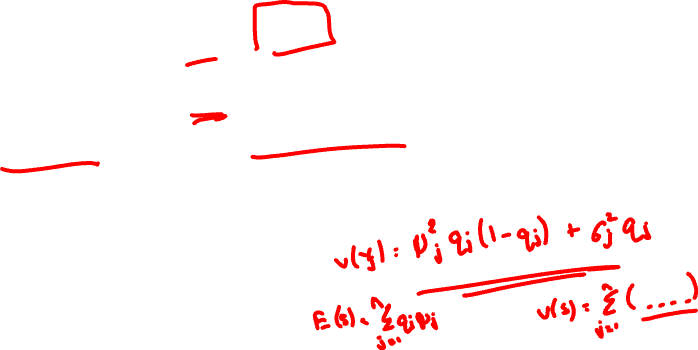 v(Yj) = μj² qj (1 - qj) + σj² qj
E(s) = ∑_{j=1}^{n} qj μj v(s) = ∑_{j=1}^{n} ( .... )